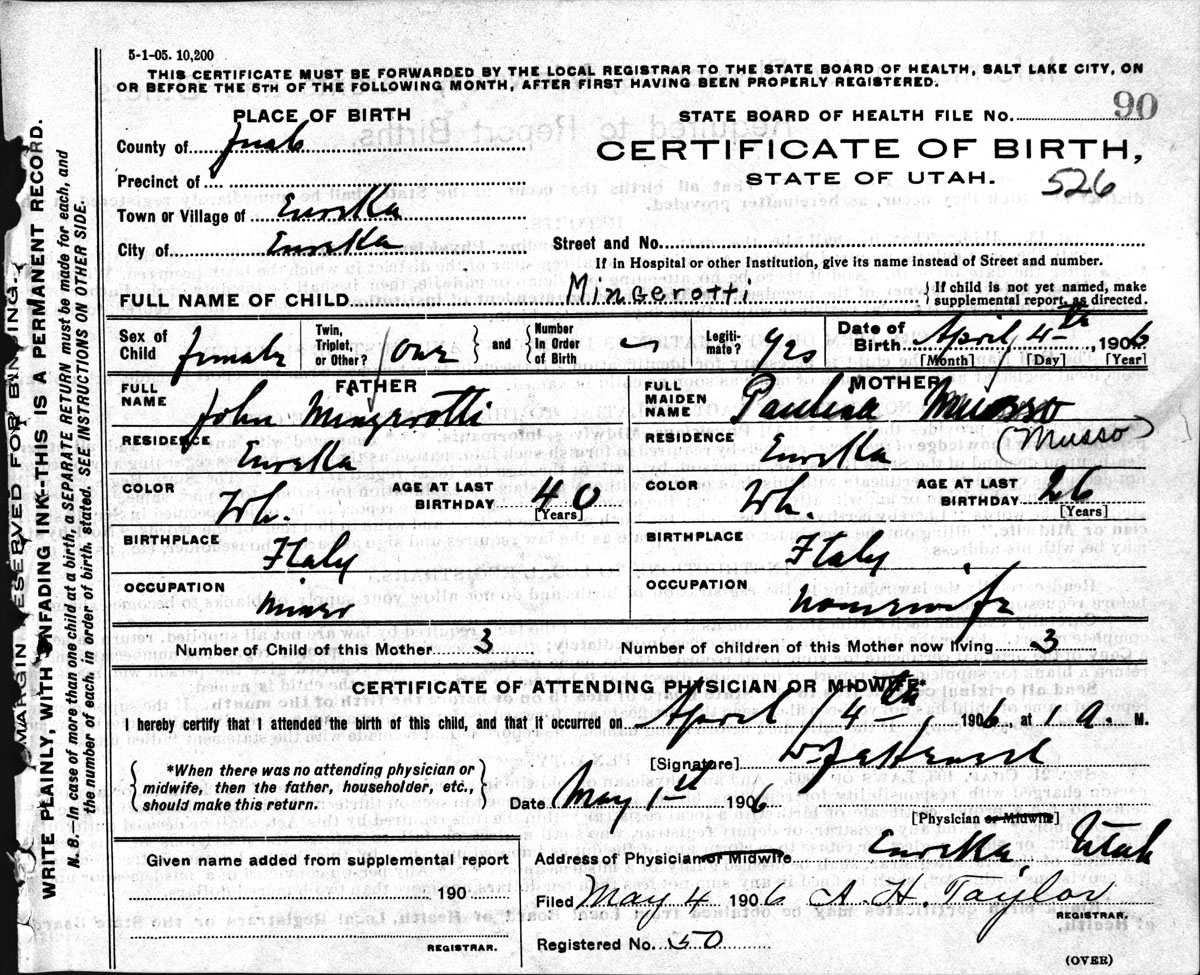 5-1-05. 10,200
THIS CERTIFICATE MUST BE FORWARDED BY THE LOCAL REGISTRAR TO THE STATE BOARD OF HEALTH, SALT LAKE CITY, ON
OR BEFORE THE 5TH OF THE FOLLOWING MONTH, AFTER FIRST HAVING BEEN PROPERLY REGISTERED.
MARGIN RESERVED FOR BINDING.
WRITE PLAINLY, WITH UNFADING INK--THIS IS A PERMANENT RECORD.
N. B. In case of more than one child at a birth, a SEPARATE RETURN must be made for each, and
the number of each, in order of birth, stated. SEE INSTRUCTIONS ON OTHER SIDE.
PLACE OF BIRTH
County of Juab
Precinct of
Town or Village of Eureka
City of Eureka
STATE BOARD OF HEALTH FILE No. 90
CERTIFICATE OF BIRTH,
STATE OF UTAH. 526
Street and No.
If in Hospital or other Institution, give its name instead of Street and number.
FULL NAME OF CHILD Mingerotti { If child is not yet named, make
supplemental report, as directed.
Sex of Child female Twin, Triplet, or Other? one and Number In Order of Birth Legiti-mate? yes Date of Birth April 4th, 1906
[Month] [Day] [Year]
FATHER
FULL NAME John Mingerotti
RESIDENCE Eureka
COLOR Wh. AGE AT LAST BIRTHDAY 40
[Years]
BIRTHPLACE Italy
OCCUPATION Miner
MOTHER
FULL MAIDEN NAME Paulina Musso
(Musso)
RESIDENCE Eureka
COLOR Wh. AGE AT LAST BIRTHDAY 26
[Years]
BIRTHPLACE Italy
OCCUPATION Housewife
Number of Child of this Mother 3 Number of children of this Mother now living 3
CERTIFICATE OF ATTENDING PHYSICIAN OR MIDWIFE*
I hereby certify that I attended the birth of this child, and that it occurred on April 4th, 1906 at 1 A. M.
*When there was no attending physician or
midwife, then the father, householder, etc.,
should make this return.
[Signature]
Date May 1st 1906
[Physician or Midwife]
Given name added from supplemental report
190
REGISTRAR.
Address of Physician or Midwife Eureka Utah
Filed May 4 1906 A. H. Taylor
REGISTRAR.
Registered No. 50
(OVER)